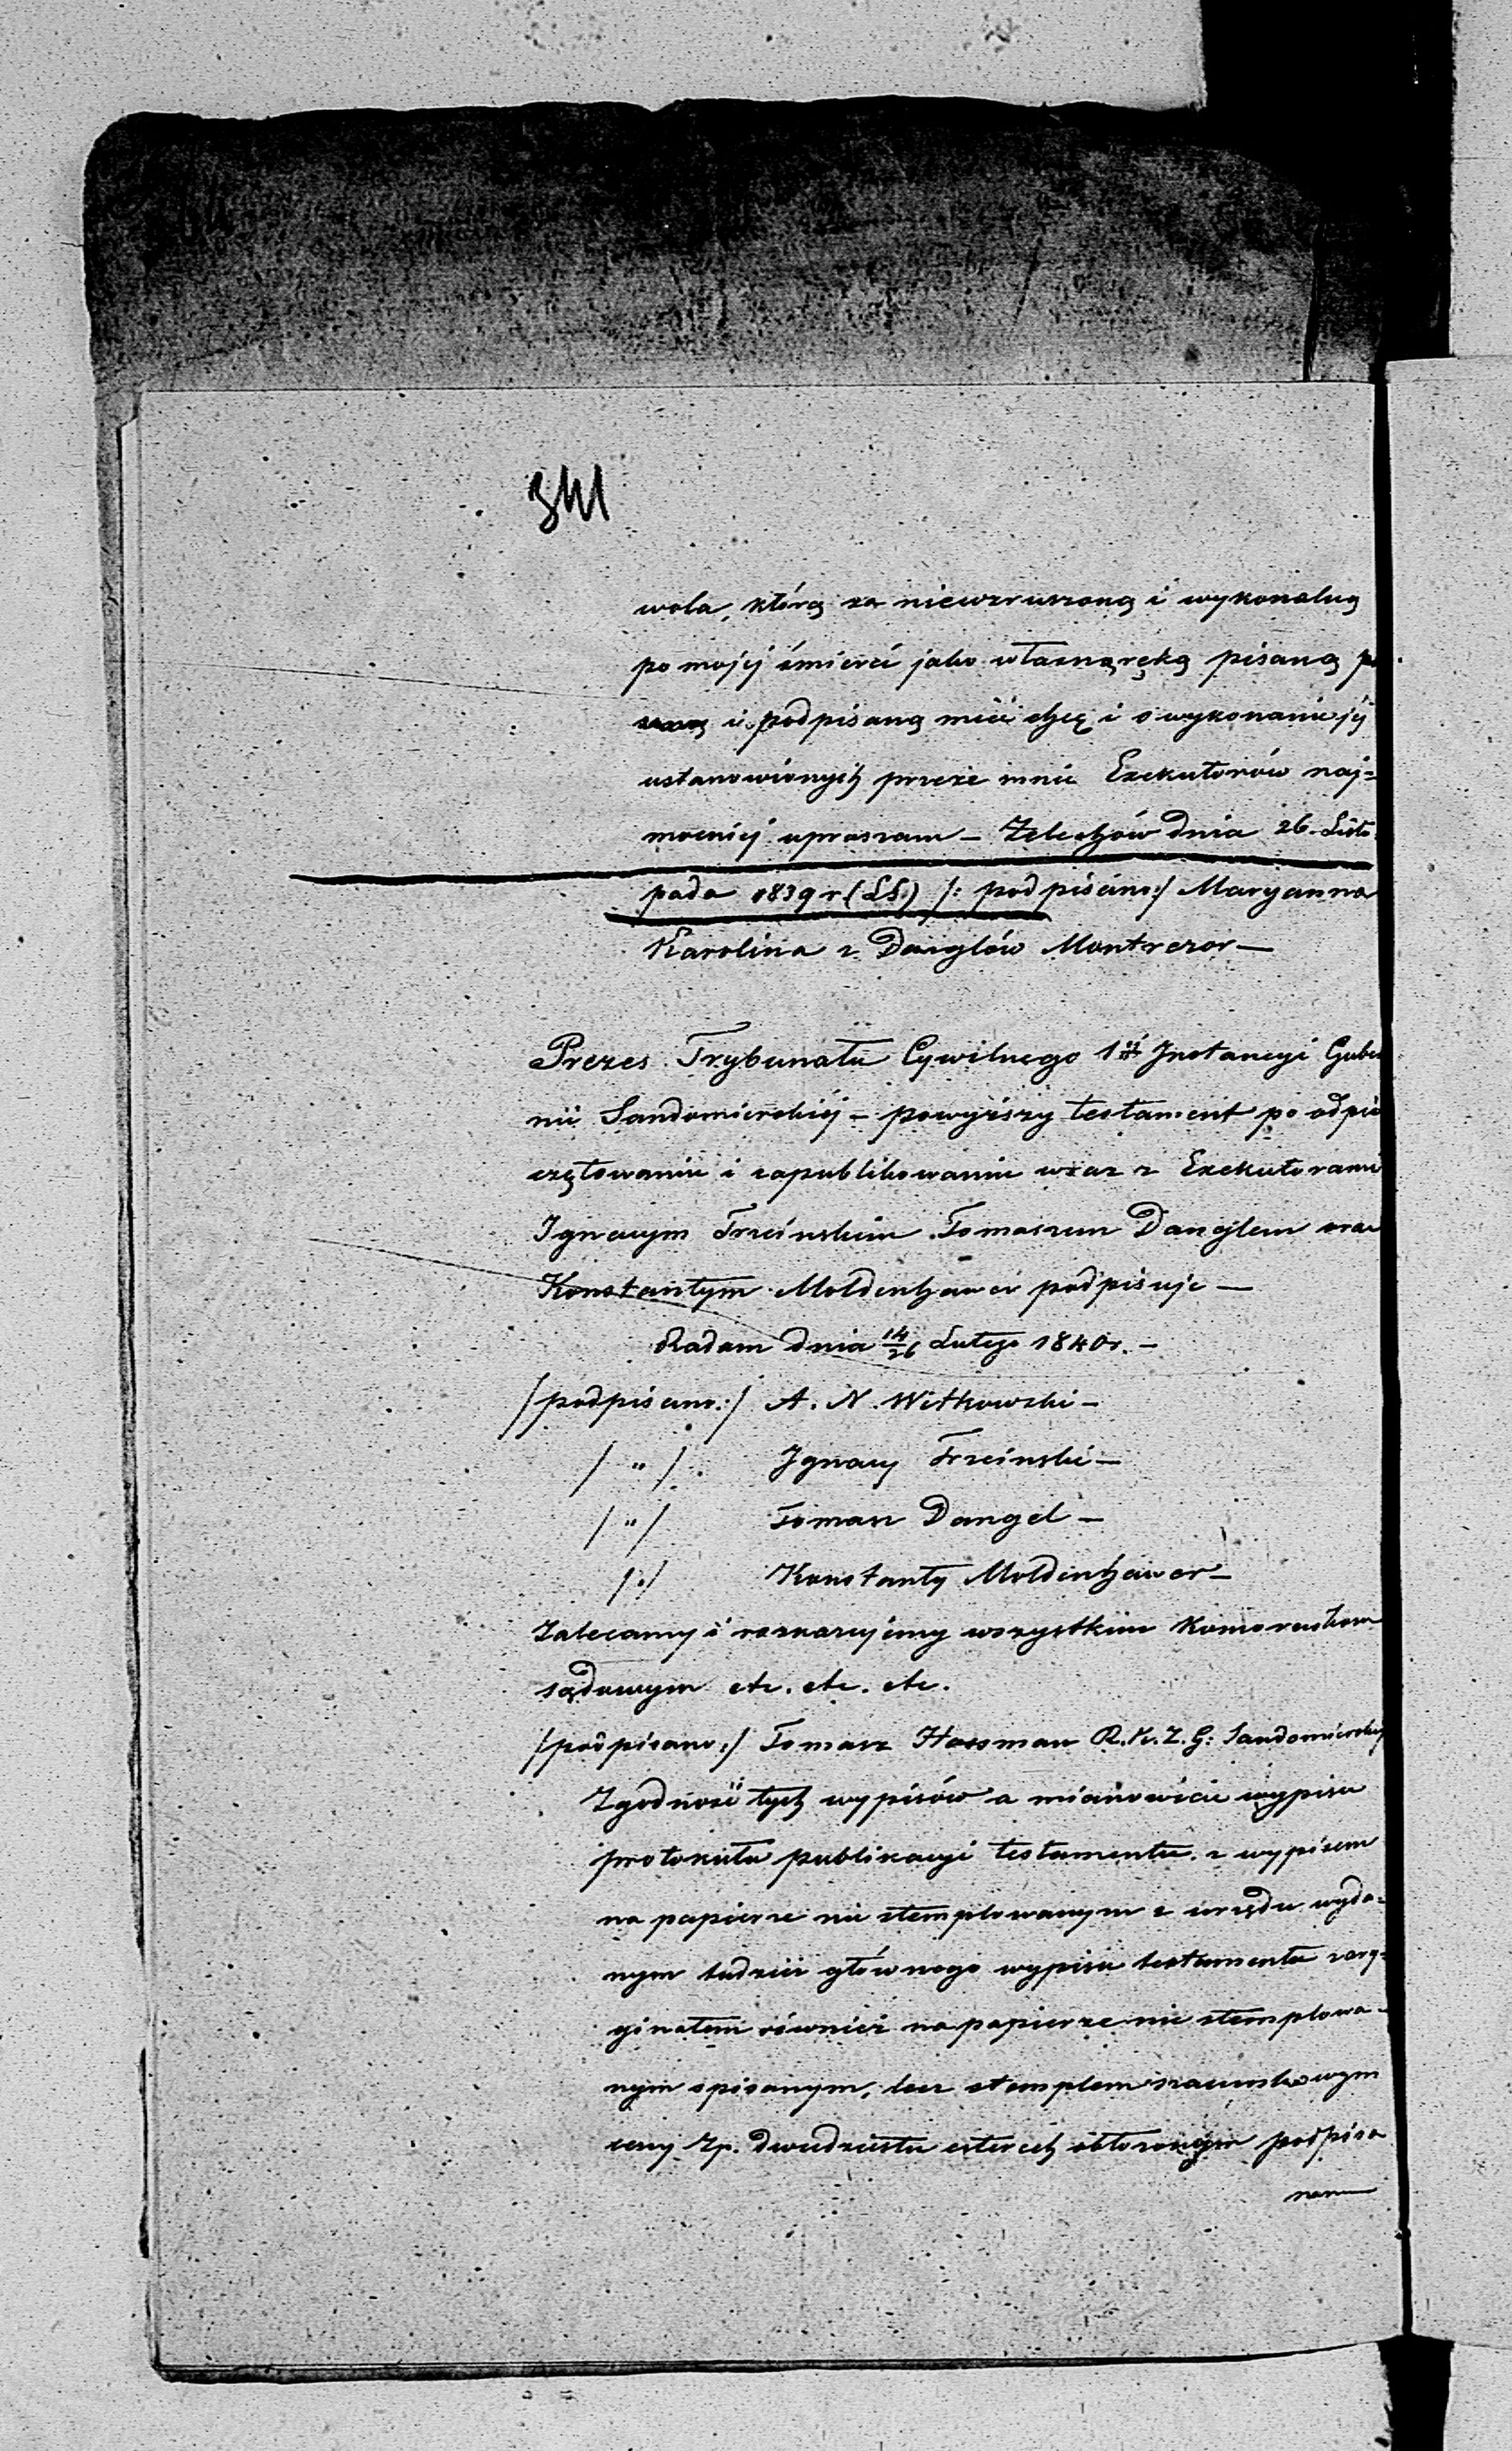 341
wola, którą za niewzruszoną i wykonalną
po mojej śmierci jako własnąręką pisaną
i podpisaną mieć chcę i o wykonanie jej
ustanowionych przeze mnie Exekutorów naj=
mocniej upraszam – Żelechów dnia 26. Listo
pada 1839 r (LS.) /: podpisano:/ Maryanna
Karolina z Danglów Montrezor —
Prezes Trybunału Cywilnego 1éj Instancyi Guber
nii Sandomierskiéj – powyższy testament po odpie
czętowaniu i zapublikowaniu wraz z Exekutorami
Ignacym Trzcińskim Tomaszem Danglem oraz
Konstantym Moldenhawer podpisuje —
Radom dnia 14/26 Lutego 1840r. –
/podpisano:/ A. N. Witkowski –
/ " / Ignacy Trzciński –
/ " / Tomasz Dangel –
/ " / Konstanty Moldenhawer –
Zalecamy i rozkazujemy wszystkim Komornikom
sądowym etc. etc. etc.
/podpisano:/ Tomasz Hassman R. K. Z. G: Sandomierskiej
Zgodność tych wypisów a mianowicie wypisu
protokułu publikacyi testamentu z wypisem
na papierze nie stemplowanym z urzędu wyda=
nym tudzież głównego wypisu testamentu z ory=
ginałem również na papierze nie stemplowa-
nym spisanym, lecz stemplem szacunkowym
ceny Zp. dwudziestu czterech obłożonym podpisa
nem